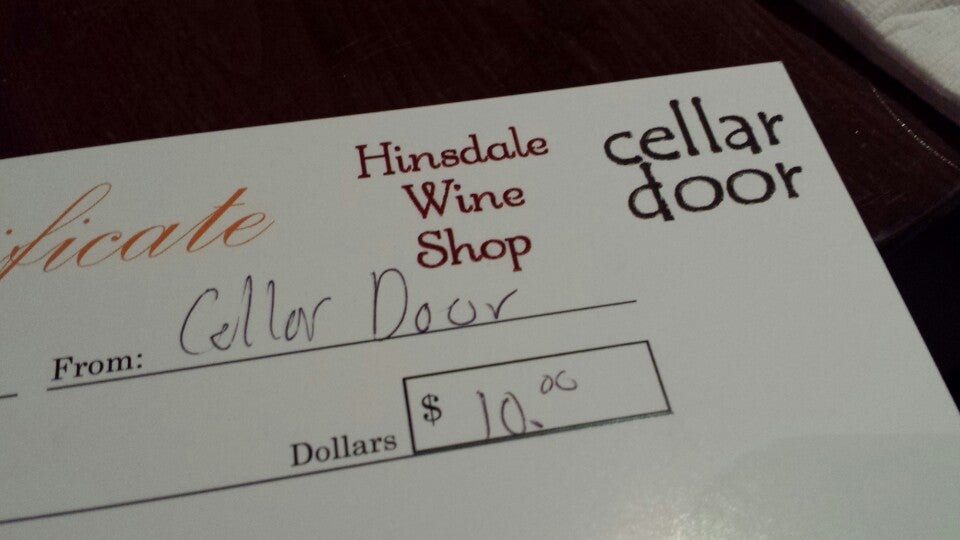 ificate
Hinsdale
Wine
Shop
cellar
door
From: Cellar Door
Dollars $ 10.00